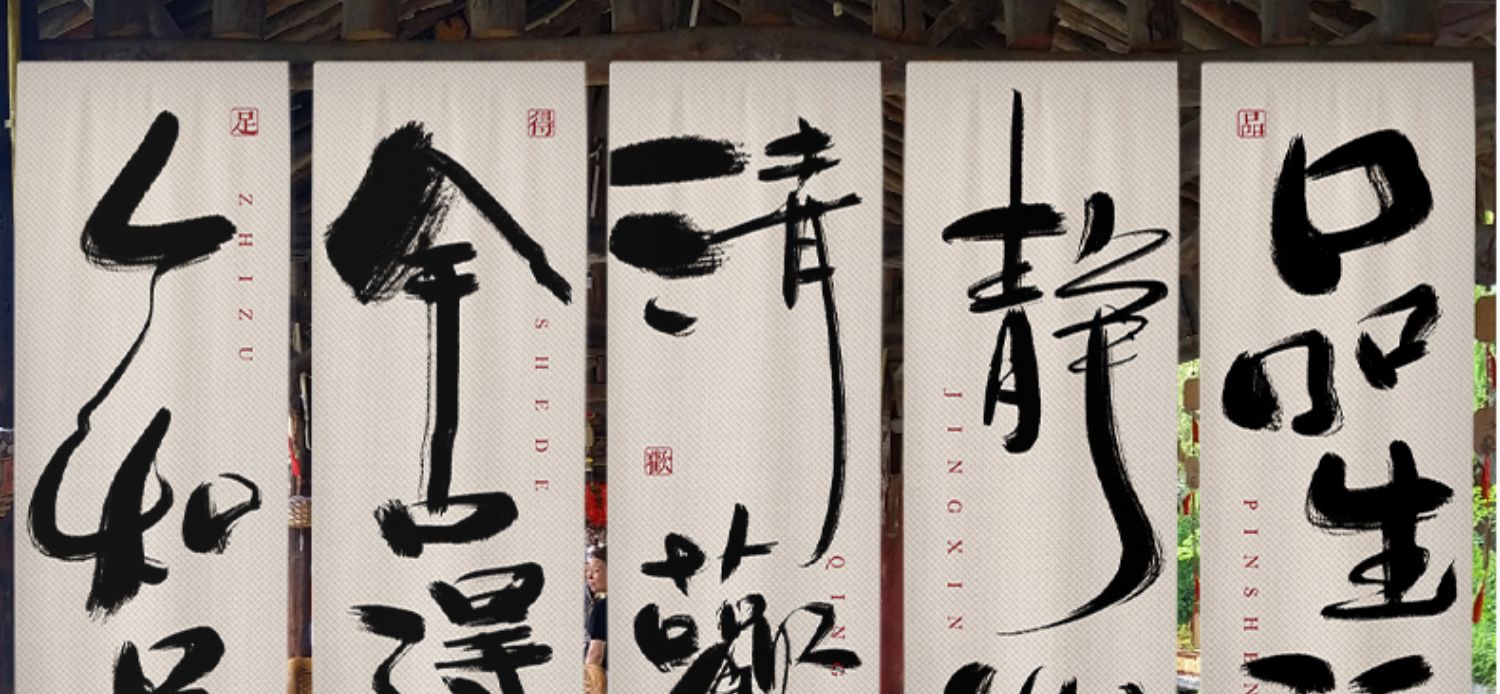 知足
足
ZHIZU
舍得
得
SHEDE
清歡
歡
QING
静
JINGXIN
品生
品
PINSHEN